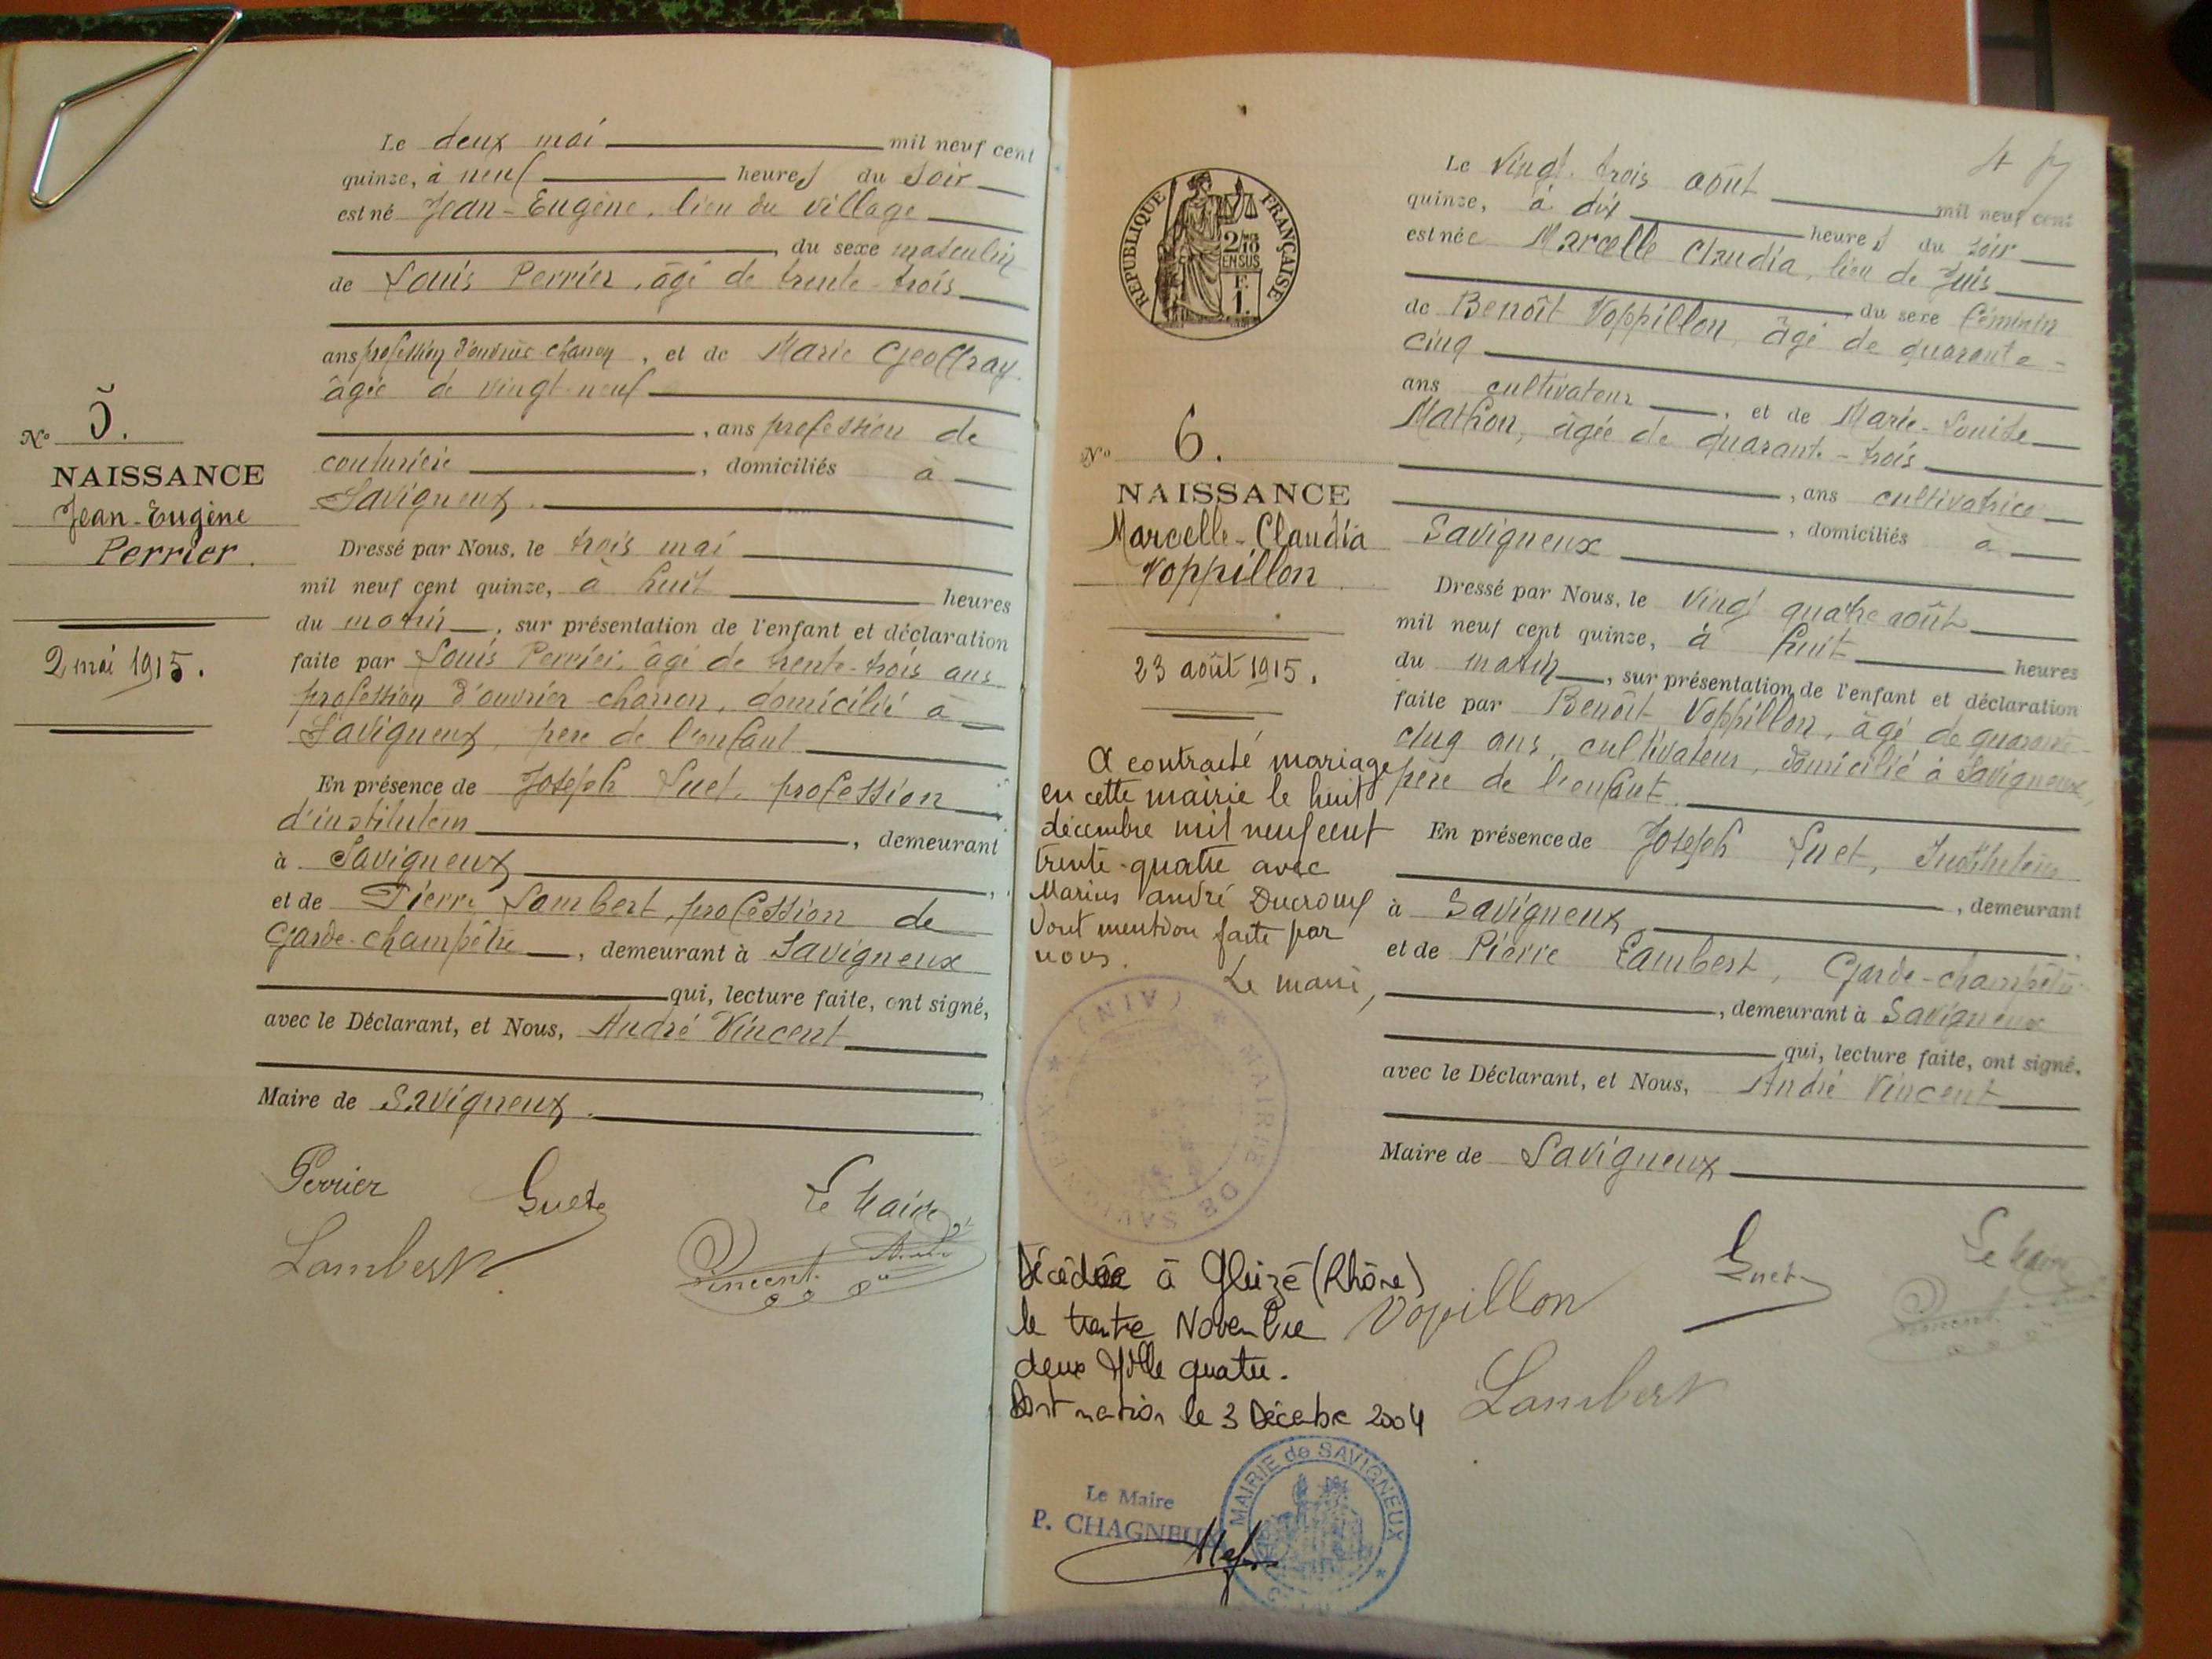 Le deux mai mil neuf cent
quinze, à neuf heures du soir
est né Jean-Eugène, lieu du village
du sexe masculin
de Louis Perrier, âgé de trente-trois
ans profession d'ouvrier charron, et de Marie Geoffray
âgée de vingt-neuf
, ans profession de
couturière, domiciliés à
Savigneux.
Dressé par Nous, le trois mai
mil neuf cent quinze, à huit heures
du matin, sur présentation de l'enfant et déclaration
faite par Louis Perrier, âgé de trente-trois ans
profession d'ouvrier charron, domicilié à
Savigneux, père de l'enfant
En présence de Joseph Guet, profession
d'instituteur, demeurant
à Savigneux
et de Pierre Lambert, profession de
Garde-champêtre, demeurant à Savigneux
qui, lecture faite, ont signé,
avec le Déclarant, et Nous, André Vincent
Maire de Savigneux.
Perrier Guet Le Maire
Lambert Vincent André
No 5.
NAISSANCE
Jean-Eugène
Perrier.
2 mai 1915.
RÉPUBLIQUE FRANÇAISE
2/10
EN SUS
F.
1.
No 6.
NAISSANCE
Marcelle-Claudia
Voppillon
23 août 1915.
A contracté mariage
en cette mairie le huit
décembre mil neuf cent
trente-quatre avec
Marius André
Dont mention faite par
nous.
Le maire,
MAIRIE DE SAVIGNEUX * (AIN) *
Décédée à Gleizé (Rhône)
le trente Novembre
deux Mille quatre.
Dont mention le 3 Décembre 2004
Le Maire
P. CHAGNEUX
MAIRIE de SAVIGNEUX
Le vingt-trois août mil neuf cent
quinze, à dix heures du soir
est née Marcelle Claudia, lieu de Juis
du sexe féminin
de Benoît Voppillon, âgé de quarante-
cinq
ans cultivateur, et de Marie-Louise
Mathon, âgée de quarante-trois
, ans cultivatrice
, domiciliés à
Savigneux
Dressé par Nous, le vingt quatre août
mil neuf cent quinze, à huit heures
du matin, sur présentation de l'enfant et déclaration
faite par Benoît Voppillon, âgé de quarante-
cinq ans, cultivateur, domicilié à Savigneux,
père de l'enfant.
En présence de Joseph Guet, Instituteur
, demeurant
à Savigneux
et de Pierre Lambert, Garde-champêtre
, demeurant à Savigneux
qui, lecture faite, ont signé,
avec le Déclarant, et Nous, André Vincent
Maire de Savigneux
Guet Le Maire
Vopillon Vincent
Lambert